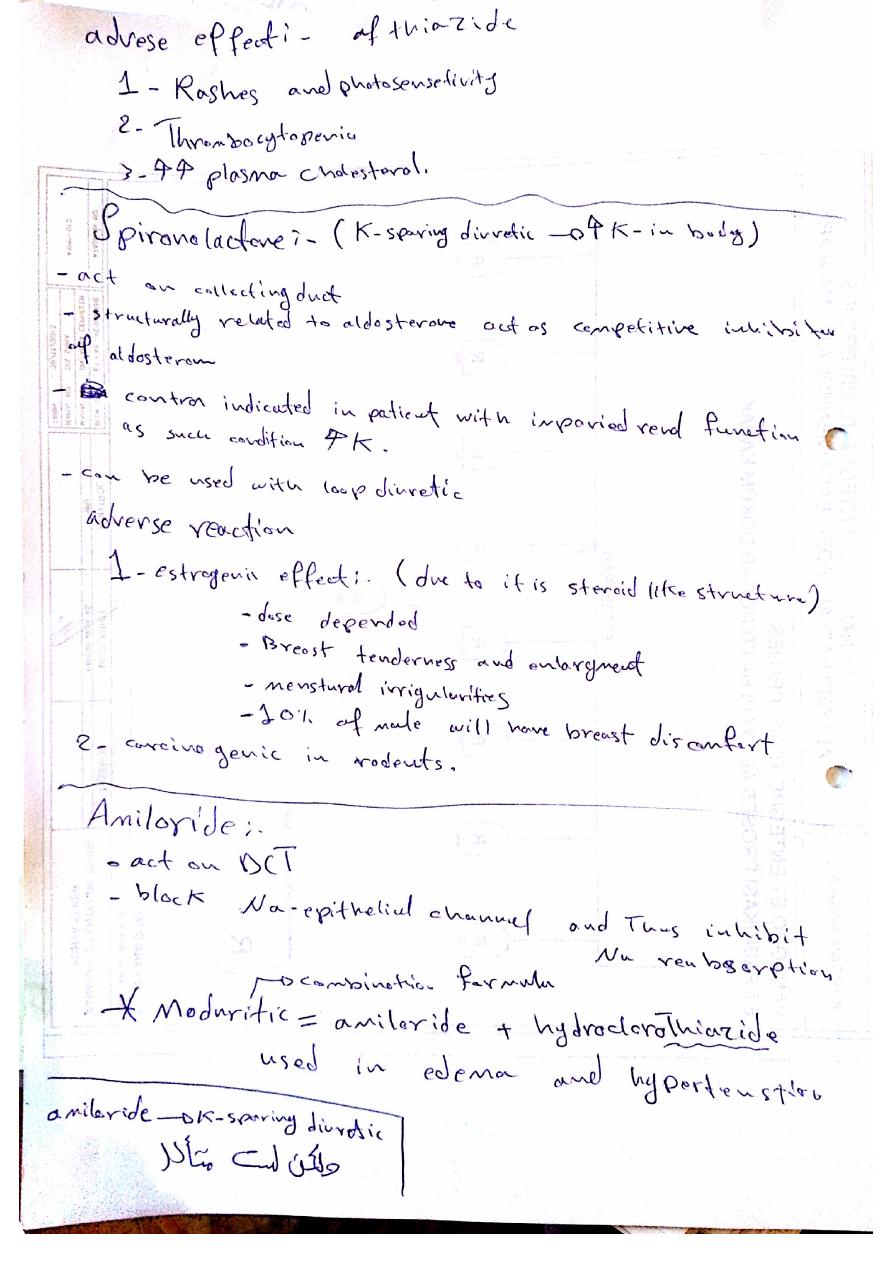 advese effect:- of thiazide
1- Rashes and photosensetivity
2- Thrombocytopenia
3- ↑↑ plasma cholesterol.
Spironolactone:- (K-sparing diuretic → ↑ K-in body)
- act on collecting duct
- structurally related to aldosterone act as competitive inhibitor
of aldosteron
- contra indicated in patient with imparied renal function
as such condition ↑ K.
- can be used with loop diuretic
adverse reaction
1- estrogenic effect:- (due to it is steroid like structure)
- dose depended
- Breast tenderness and enlargment
- menstural irrigularities
- 10% of male will have breast discomfort
2- carcinogenic in rodents.
Amiloride:-
- act on DCT
- block Na-epithelial channel and Thus inhibit
Na reabsorption
→ combination formula
* Moduritic = amiloride + hydroclorothiazide
used in edema and hypertenstion
amiloride → K-sparing diuretic
ولكن لست متأكد